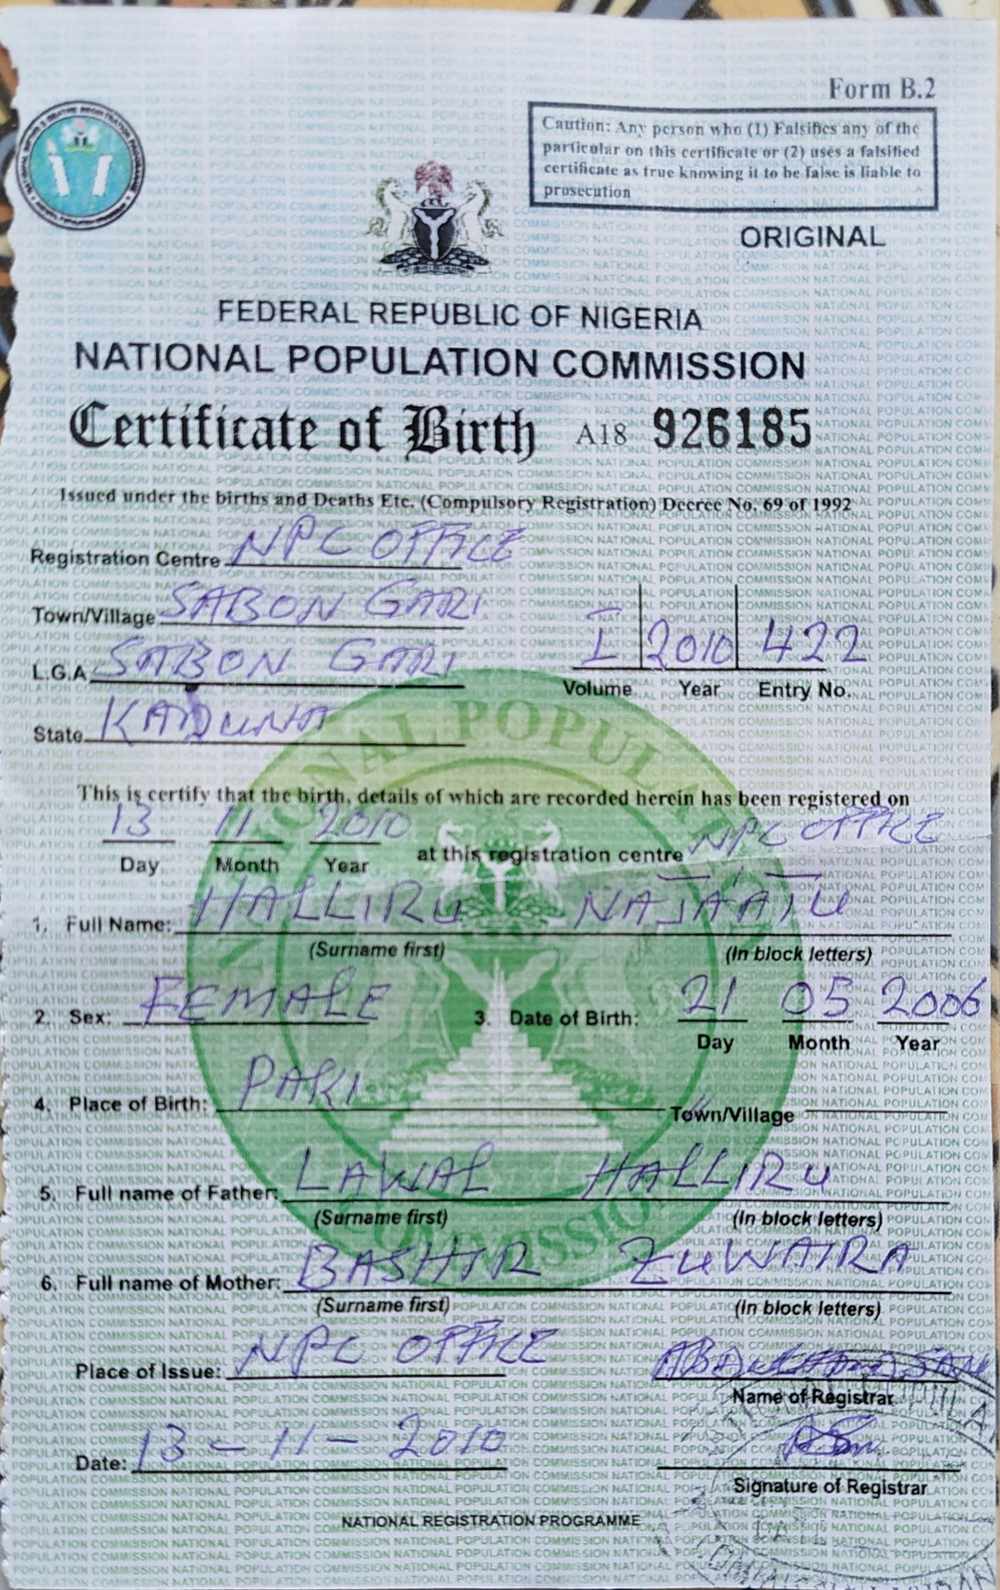 Form B.2
Caution: Any person who (1) Falsifies any of the
particular on this certificate or (2) uses a falsified
certificate as true knowing it to be false is liable to
prosecution
ORIGINAL
FEDERAL REPUBLIC OF NIGERIA
NATIONAL POPULATION COMMISSION
Certificate of Birth A18 926185
Issued under the births and Deaths Etc. (Compulsory Registration) Decree No. 69 of 1992
Registration Centre NPC OFFICE
Town/Village SABON GARI
L.G.A SABON GARI
I 2010 422
Volume Year Entry No.
State KADUNA
This is certify that the birth, details of which are recorded herein has been registered on
13 11 2010 at this registration centre NPC OFFICE
Day Month Year
1. Full Name: HALLIRU NAJAATU
(Surname first) (In block letters)
2. Sex: FEMALE 3. Date of Birth: 21 05 2006
Day Month Year
4. Place of Birth: PAKI Town/Village
5. Full name of Father: LAWAL HALLIRU
(Surname first) (In block letters)
6. Full name of Mother: BASHIR ZUWAIRA
(Surname first) (In block letters)
Place of Issue: NPC OFFICE
Name of Registrar
Date: 13-11-2010
Signature of Registrar
NATIONAL REGISTRATION PROGRAMME